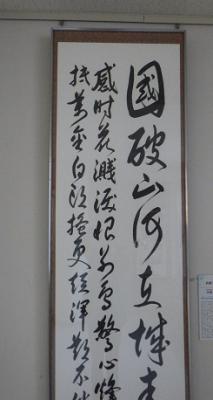 國破山河在城春
感時花濺淚恨別鳥驚心烽
抵萬金白頭搔更短渾欲不勝